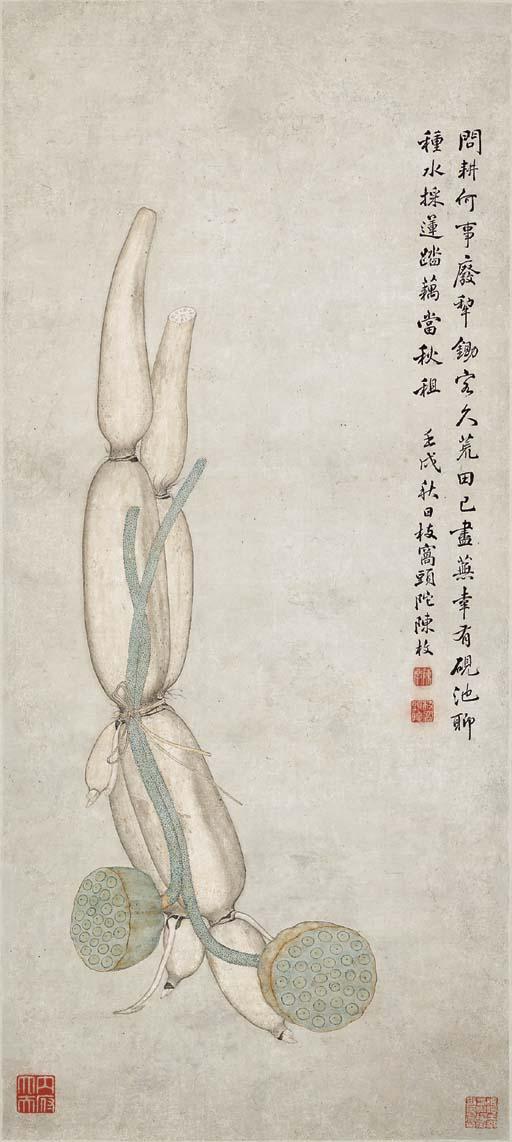 問耕何事廢犂鋤客久荒田已盡蕪幸有硯池聊
種水採蓮踏藕當秋租
壬戌秋日枝窩頭陀陳枚